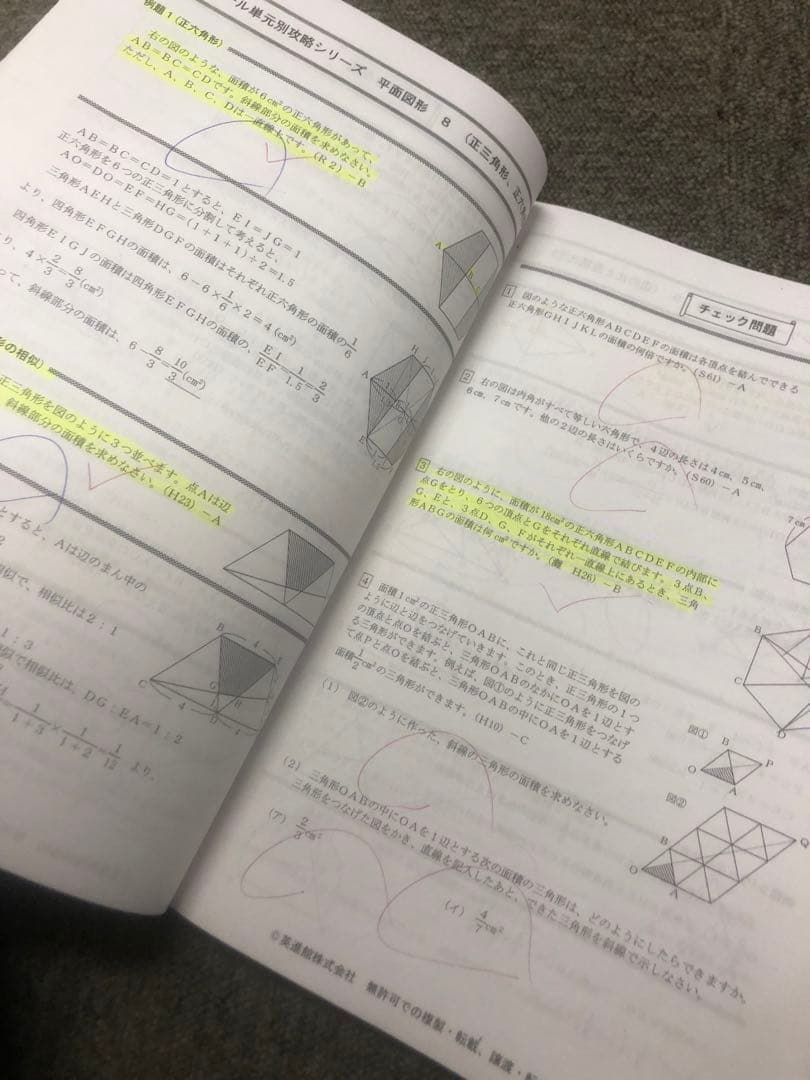 ル単元別攻略シリーズ 平面図形 8 (正三角形、正六
例題1(正六角形)
右の図のような、面積が6cm²の正六角形があって、
AB=BC=CDです。斜線部分の面積を求めなさい。
ただし、A、B、C、Dは一直線上です。(R2)-B
AB=BC=CD=1とすると、EI=JG=1
正六角形を6つの正三角形に分割して考えると、
AO=DO=EF=HG=(1+1+1)÷2=1.5
三角形AEHと三角形DGFの面積はそれぞれ正六角形の面積の1/6
より、四角形EFGHの面積は、6-6×1/6×2=4(cm²)
四角形EIGJの面積は四角形EFGHの面積の、EI/EF=1/1.5=2/3
り、4×2/3=8/3(cm²)
って、斜線部分の面積は、6-8/3=10/3(cm²)
形の相似)
正三角形を図のように3つ並べます。点Aは辺
斜線部分の面積を求めなさい。(H23)-A
とすると、Aは辺のまん中の
相似で、相似比は2:1
1:3
似で相似比は、DG:EA=1:2
1/1+3×1/1+2=1/12より、
チェック問題
1 図のような正六角形ABCDEFの面積は各頂点を結んでできる
正六角形GHIJKLの面積の何倍ですか。(S61)-A
2 右の図は内角がすべて等しい六角形で、4辺の長さは4cm、5cm、
6cm、7cmです。他の2辺の長さはいくらですか。(S60)-A
3 右の図のように、面積が18cm²の正六角形ABCDEFの内部に
点Gをとり、6つの頂点とGをそれぞれ直線で結びます。3点B、
G、Eと、3点D、G、Fがそれぞれ一直線上にあるとき、三角
形ABGの面積は何cm²ですか。(灘 H26)-B
4 面積1cm²の正三角形OABに、これと同じ正三角形を図の
ように辺と辺をつなげていきます。このとき、正三角形の1つ
の頂点と点Oを結ぶと、三角形OABのなかにOAを1辺とす
る三角形ができます。例えば、図①のように正三角形をつなげ
て点Pと点Oを結ぶと、三角形OABの中にOAを1辺とする
面積1/2cm²の三角形ができます。(H10)-C
(1) 図②のように作った、斜線の三角形の面積を求めなさい。
(2) 三角形OABの中にOAを1辺とする次の面積の三角形は、どのようにしたらできますか。
三角形をつなげた図をかき、直線を記入したあと、できた三角形を斜線で示しなさい。
(ア) 2/3cm²
(イ) 4/7cm²
図①
B
P
O
A
図②
B
Q
O
A
©英進館株式会社 無許可での複製・転載、譲渡・